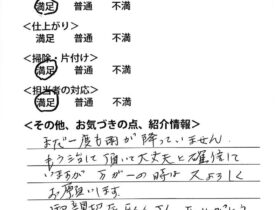 満足 普通 不満
<仕上がり>
満足 普通 不満
<掃除・片付け>
満足 普通 不満
<担当者の対応>
満足 普通 不満
<その他、お気づきの点、紹介情報>
まだ一度も雨が降っていません。
もう当分 頂いて大丈夫と確信して
いますが 万が一の時は 又よろしく
お願いします